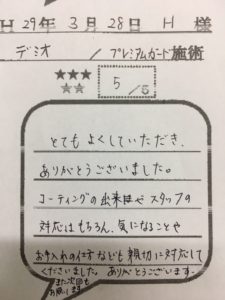 H 29 年 3 月 28 日 H 様
デミオ / プレミアムガード 施術
★★★☆☆ 5 / 5
とてもよくしていただき、
ありがとうございました。
コーティングの出来ばや スタッフの
対応はもちろん、気になることや
お手入れの仕方なども 親切に対応して
くださいました。ありがとうございます。
また次回も
お願いします